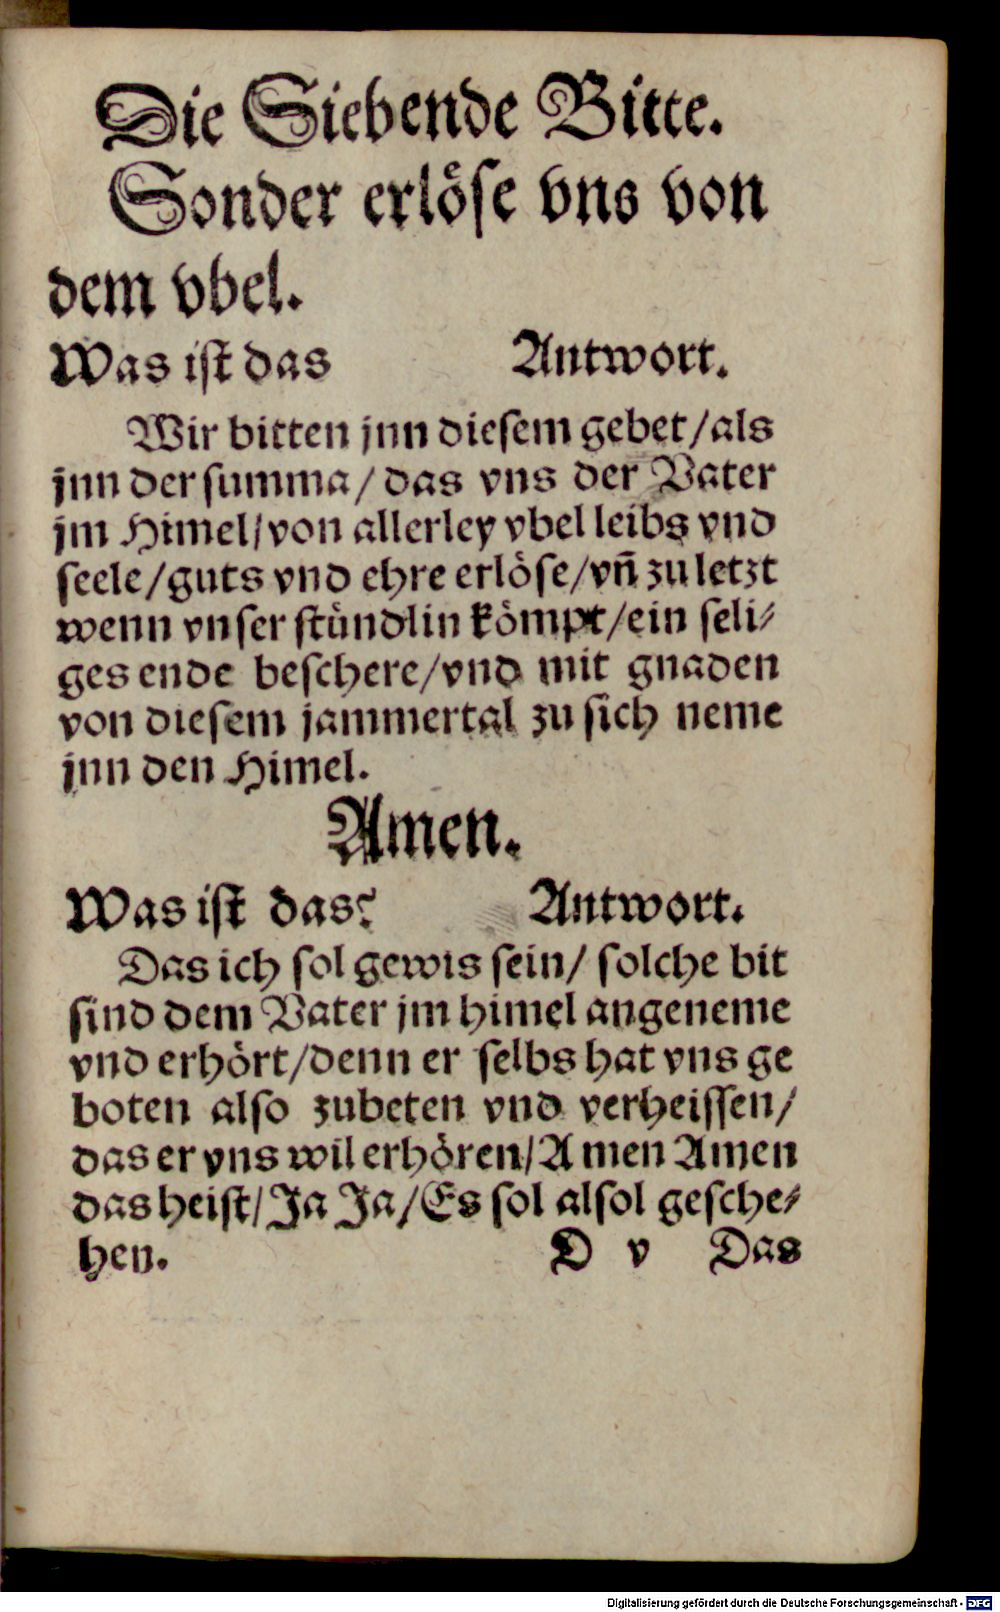 Die Siebende Bitte.
Sonder erlöse vns von
dem vbel.
Was ist das Antwort.
Wir bitten jnn diesem gebet/als
jnn der summa/das vns der Vater
jm Himel/von allerley vbel leibs vnd
seele/guts vnd ehre erlöse/vñ zu letzt
wenn vnser stündlin kömpt/ein seli⸗
ges ende beschere/vnd mit gnaden
von diesem jammertal zu sich neme
jnn den Himel.
Amen.
Was ist das? Antwort.
Das ich sol gewis sein/ solche bit
sind dem Vater jm himel angeneme
vnd erhört/denn er selbs hat vns ge
boten also zubeten vnd verheissen/
das er vns wil erhören/Amen Amen
das heist/Ja Ja/Es sol alsol gesche⸗
hen. D v Das
Digitalisierung gefördert durch die Deutsche Forschungsgemeinschaft - DFG